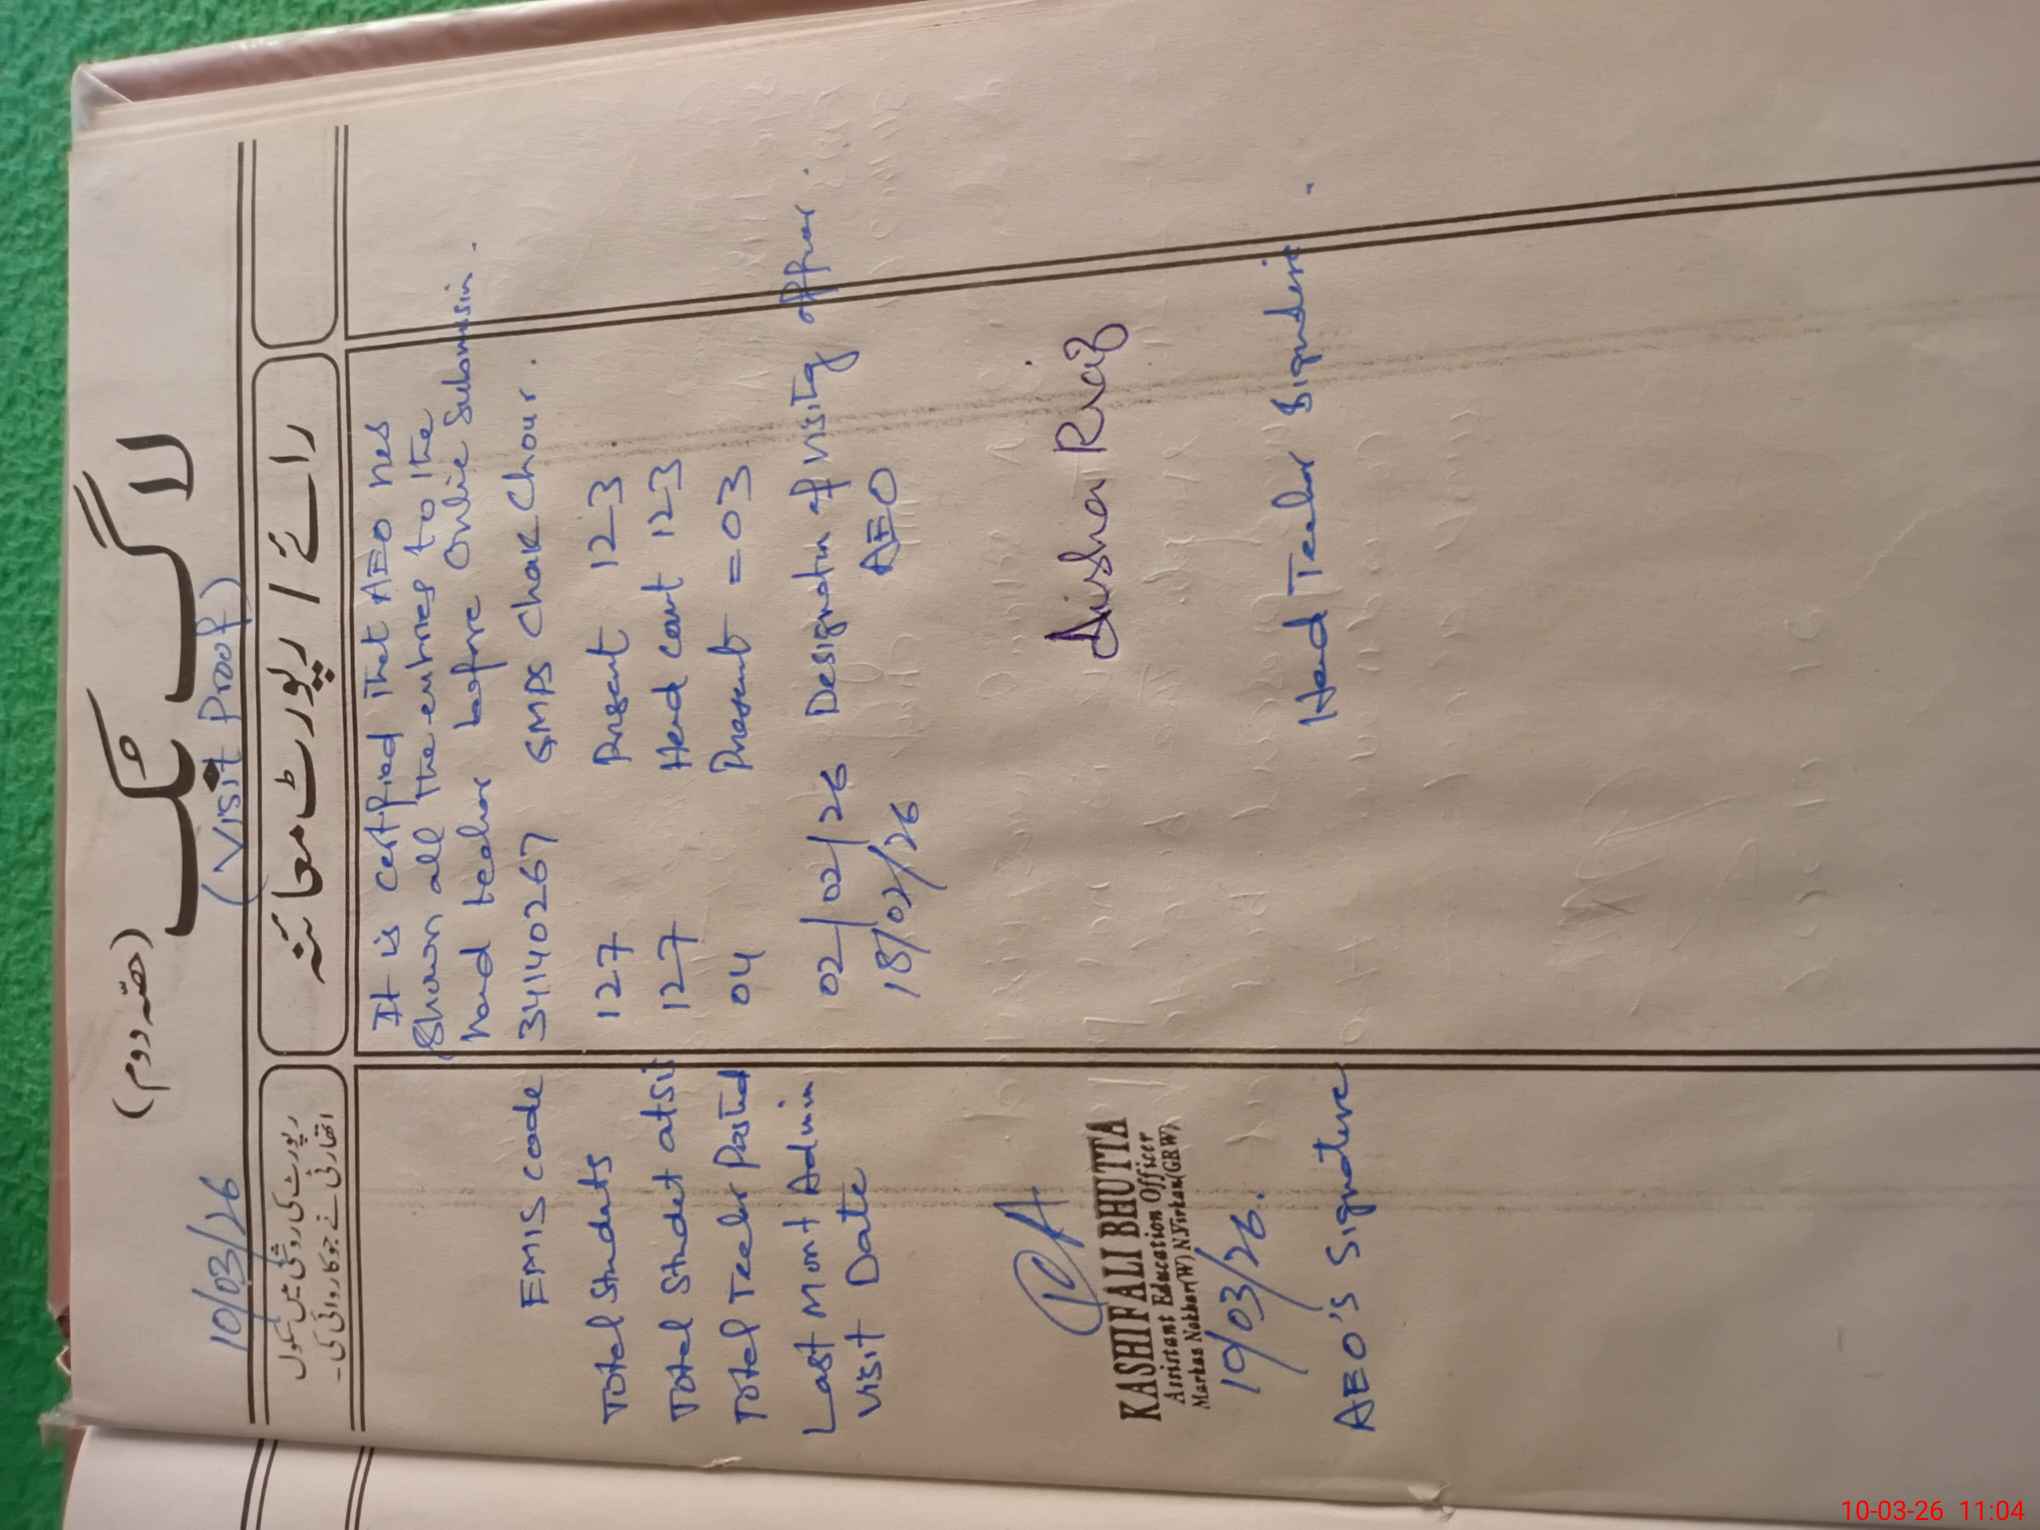 (حصّہ دوم)
لاگ بک
10/03/26 (Visit Proof)
رپورٹ کی روشنی میں سکول
اتھارٹی نے جو کارروائی کی۔
رائے / رپورٹ معائنہ
It is certified that AEO has
shown all the entries to the
head teacher before Online Submissin.
EMIS code 34140267 GMPS Chak Chour.
Total Students 127 Present 123
Total Studet atSi 127 Head cont 123
Total Teacher Posted 04 Present = 03
Last Mont Admin 02/02/26 Designation of visitg officer.
Visit Date 18/02/26 AEO
Aisha Riaz
KASHIF ALI BHUTTA
Assistant Education Officer
Markaz Nokhar(W) N.Virkan(GRW)
10/03/26.
AEO's Signature Head Teacher Signature.
10-03-26 11:04